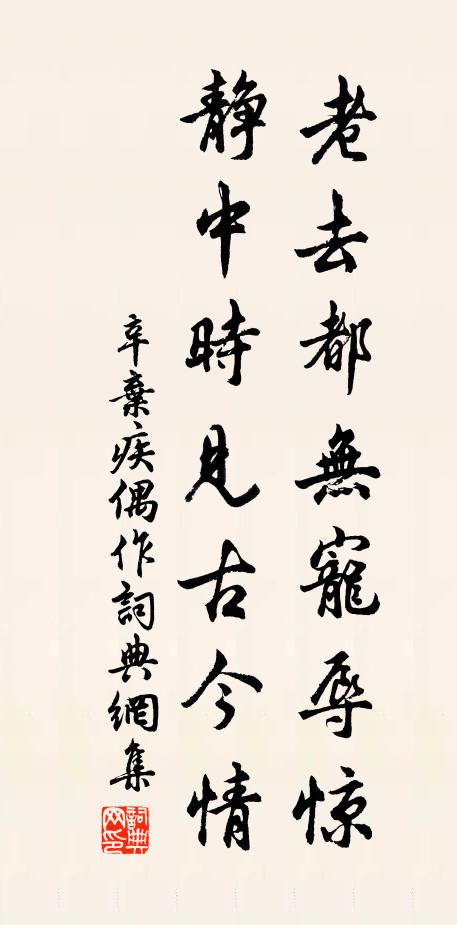 老去都無寵辱惊
靜中時見古今情
辛棄疾偶作詞典網集
詞典網印